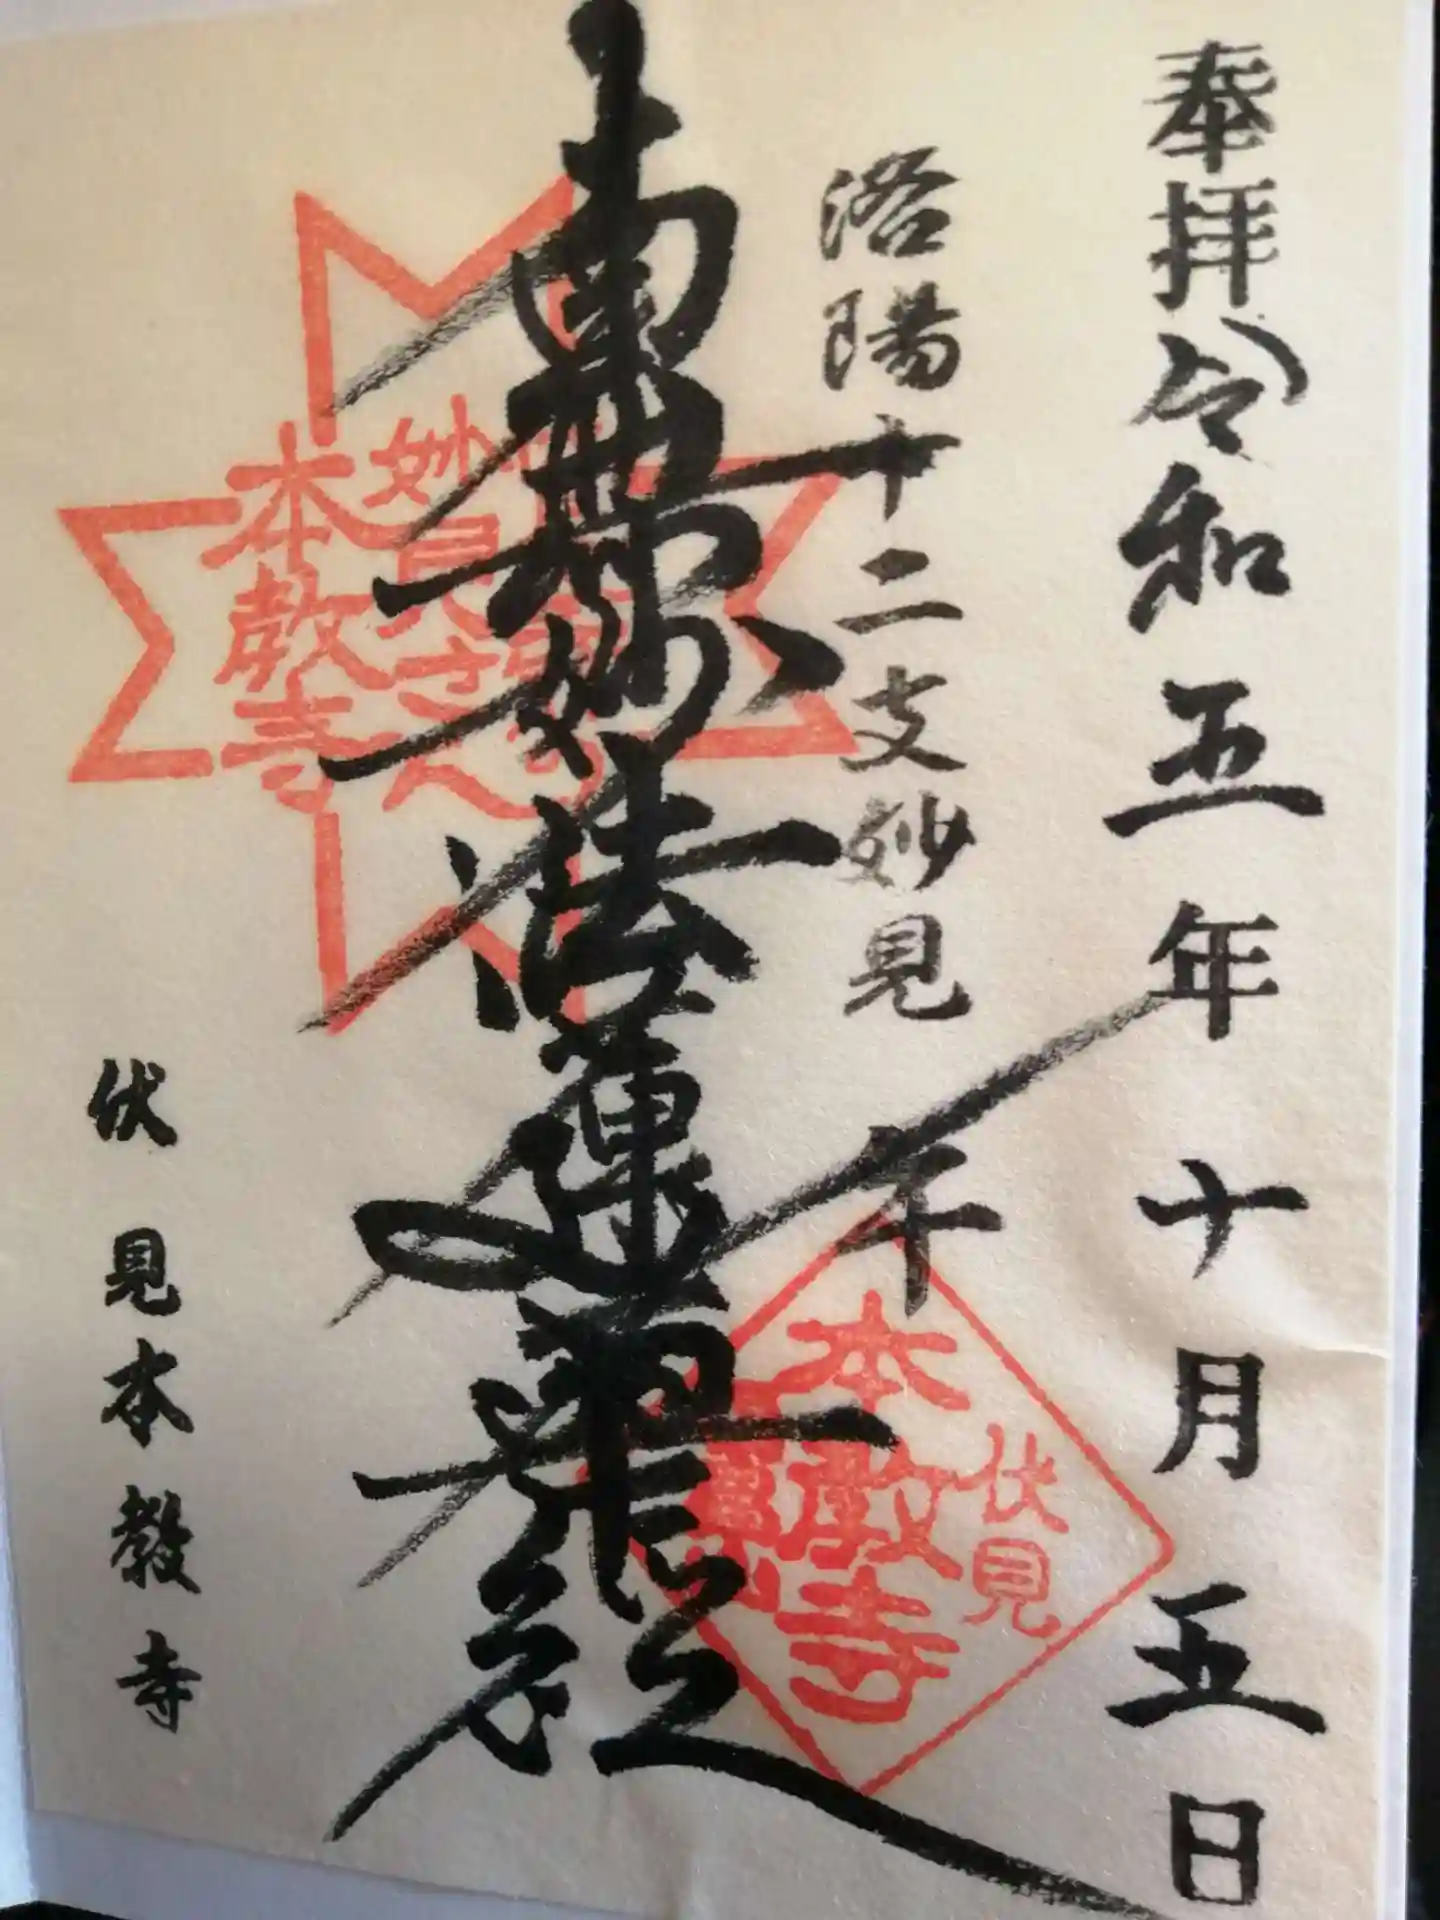 奉拝 令和五年十月五日
洛陽十二支妙見 午
南無妙法蓮華経
妙見さん
本教寺
伏見
本教寺
伏見本教寺